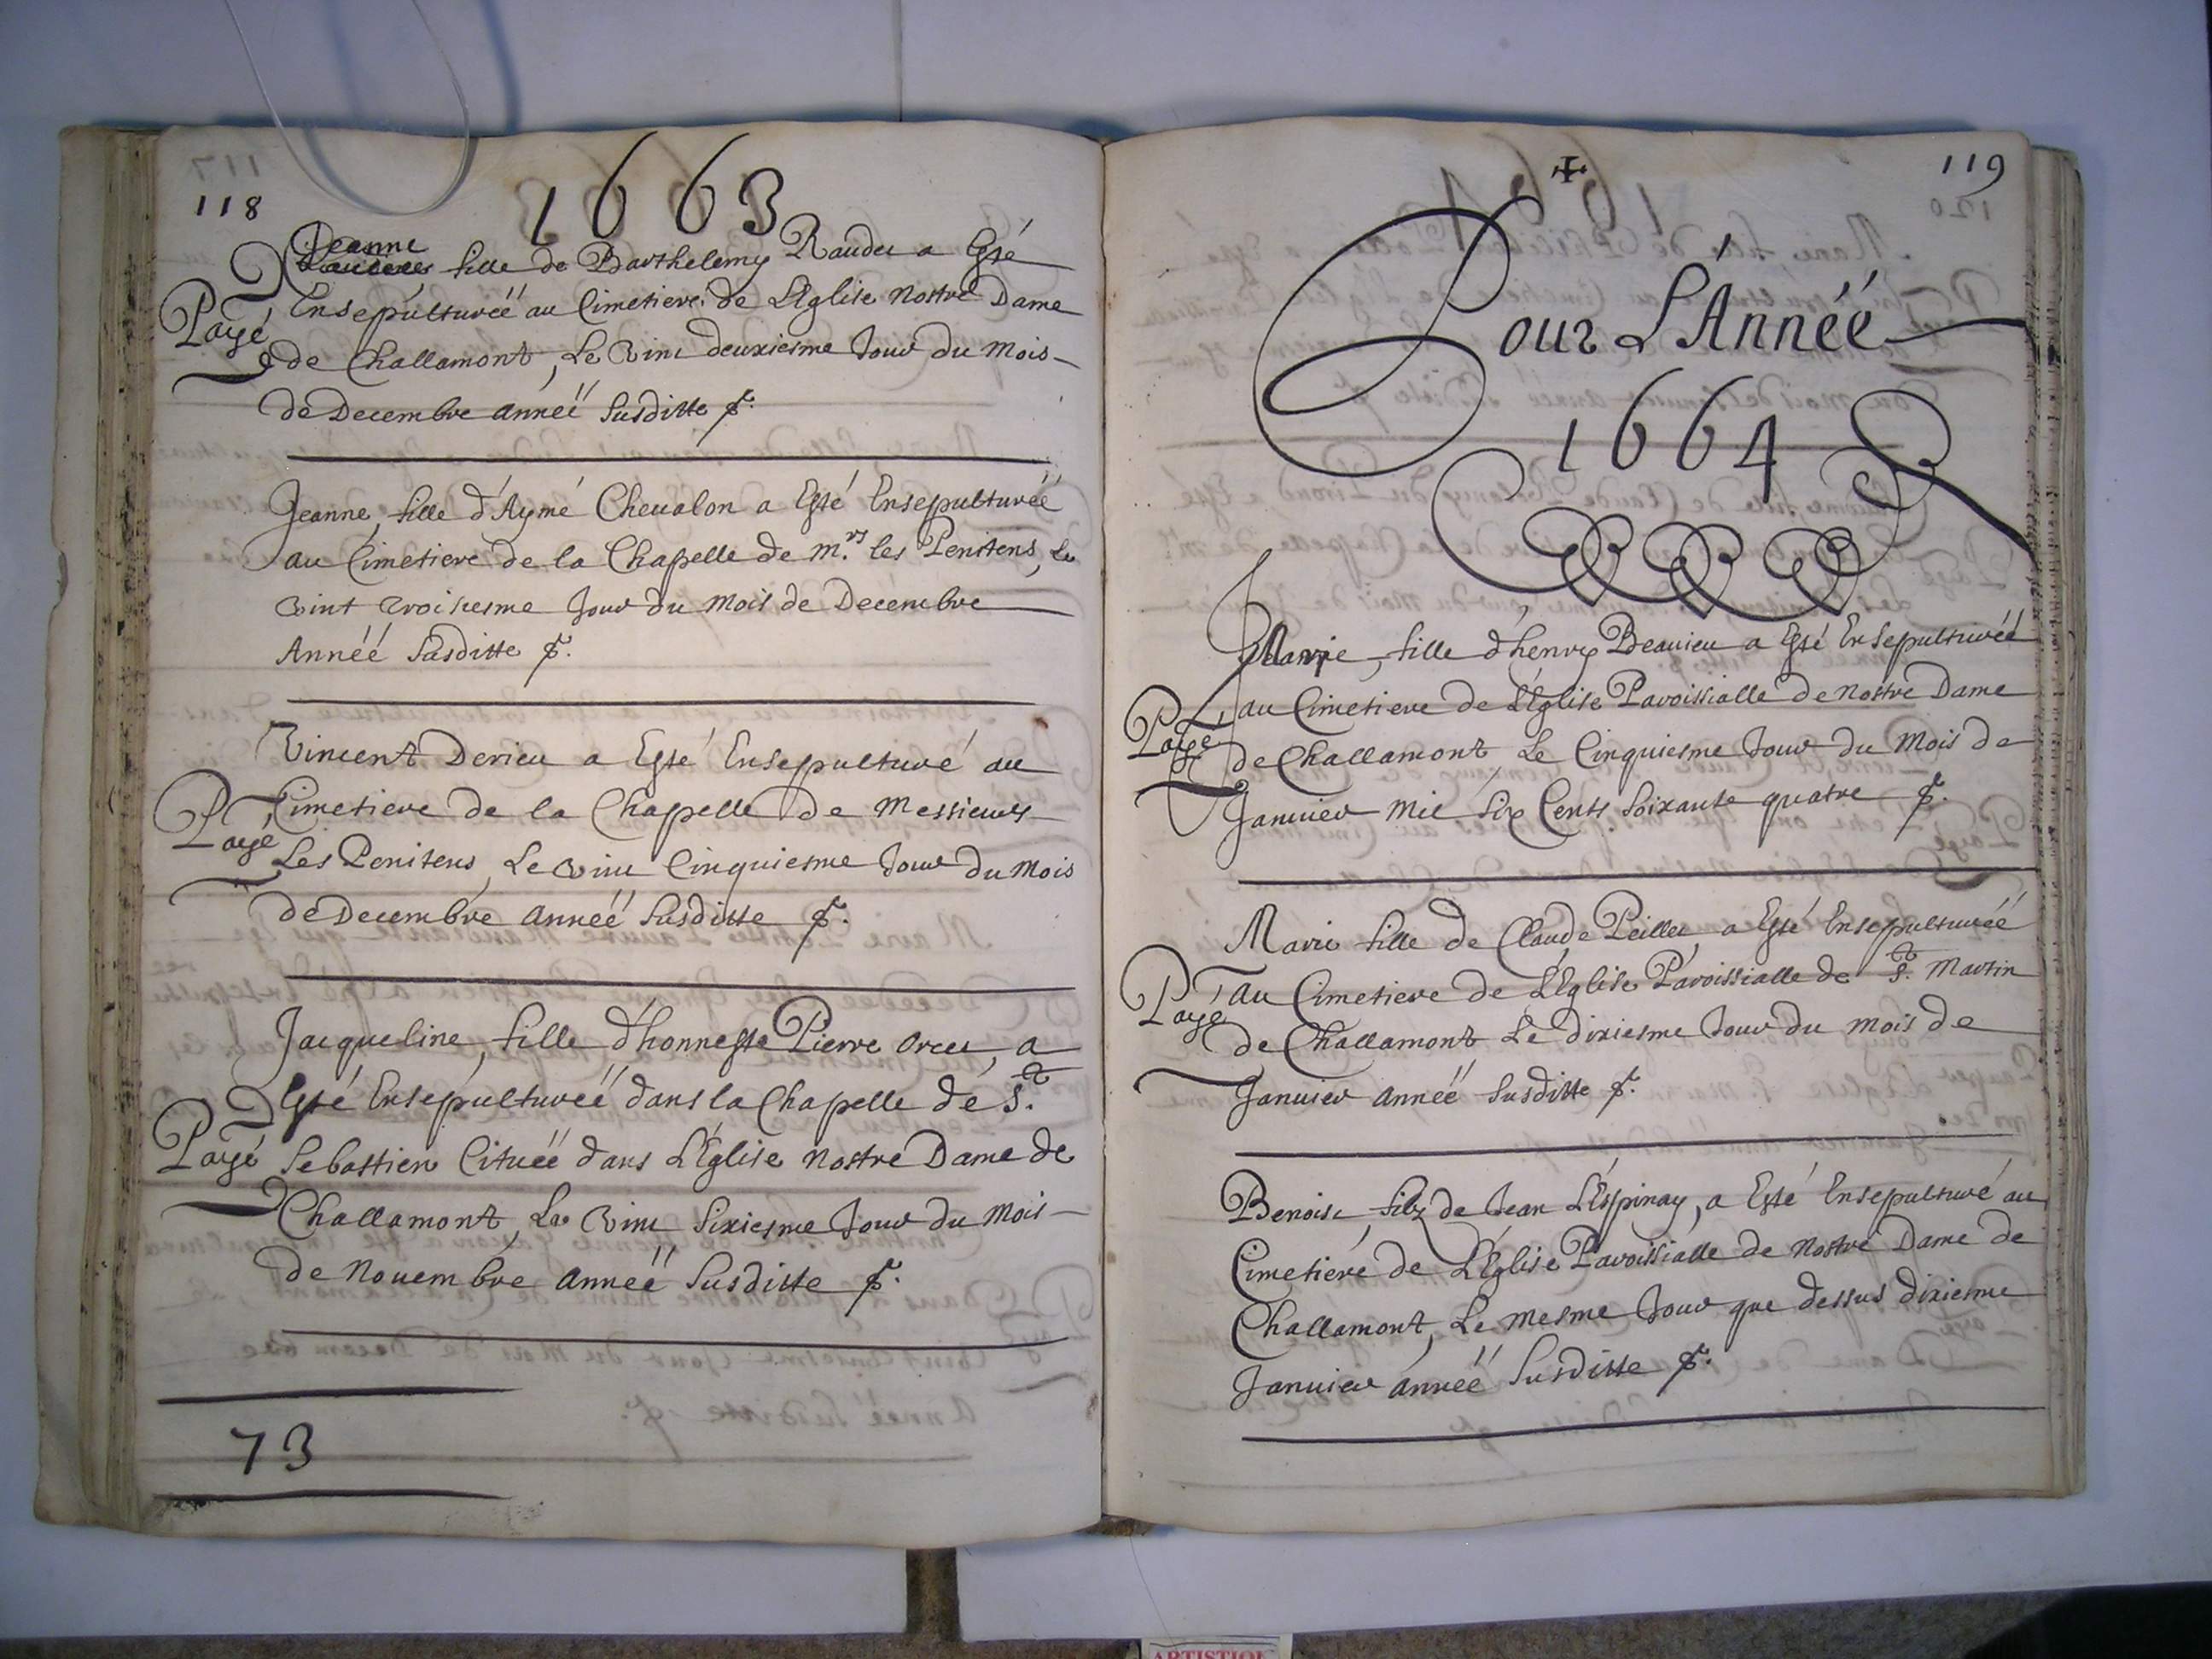 118
1663
Jeanne
fille de Barthelemy Raudet a Esté
Ensepulturéé au Cimetiere de L'Eglise Nostre Dame
Payé
de Challamont, Le Vint deuxiesme Jour du Mois
de Decembre annéé Susditte
Jeanne, fille d'Aymé Cheualon a Esté Ensepulturéé
au Cimetiere de la Chapelle de M.rs les Penitens, Le
Vint Troisiesme Jour du Mois de Decembre
Annéé Susditte
Vincent Derieu a Esté Ensepulturé au
Cimetiere de la Chapelle de Messieurs
Payé
Les Penitens, Le Vint Cinquiesme Jour du Mois
de Decembre annéé Susditte
Jacqueline, fille d'honneste Pierre Orcet, a
Esté Ensepulturéé dans la Chapelle de S.t
Payé
Sebastien Cituéé dans L'Eglise Nostre Dame de
Challamont, Le Vint Sixiesme Jour du Mois
de Nouembre annéé Susditte
73
119
Pour L'Annéé
1664
Marie, fille d'henry Beauieu a Esté Ensepulturéé
au Cimetiere de L'Eglise Paroissialle de Nostre Dame
Payé
de Challamont, Le Cinquiesme Jour du Mois de
Januier Mil Six Cents Soixante quatre
Marie fille de Claude Peillet, a Esté Ensepulturéé
au Cimetiere de L'Eglise Paroissialle de S.t Martin
Payé
de Challamont Le dixiesme Jour du Mois de
Januier annéé Susditte
Benoist, filz de Jean L'Espinay, a Esté Ensepulturé au
Cimetiere de L'Eglise Paroissialle de Nostre Dame de
Challamont, Le Mesme Jour que dessus dixiesme
Januier annéé Susditte